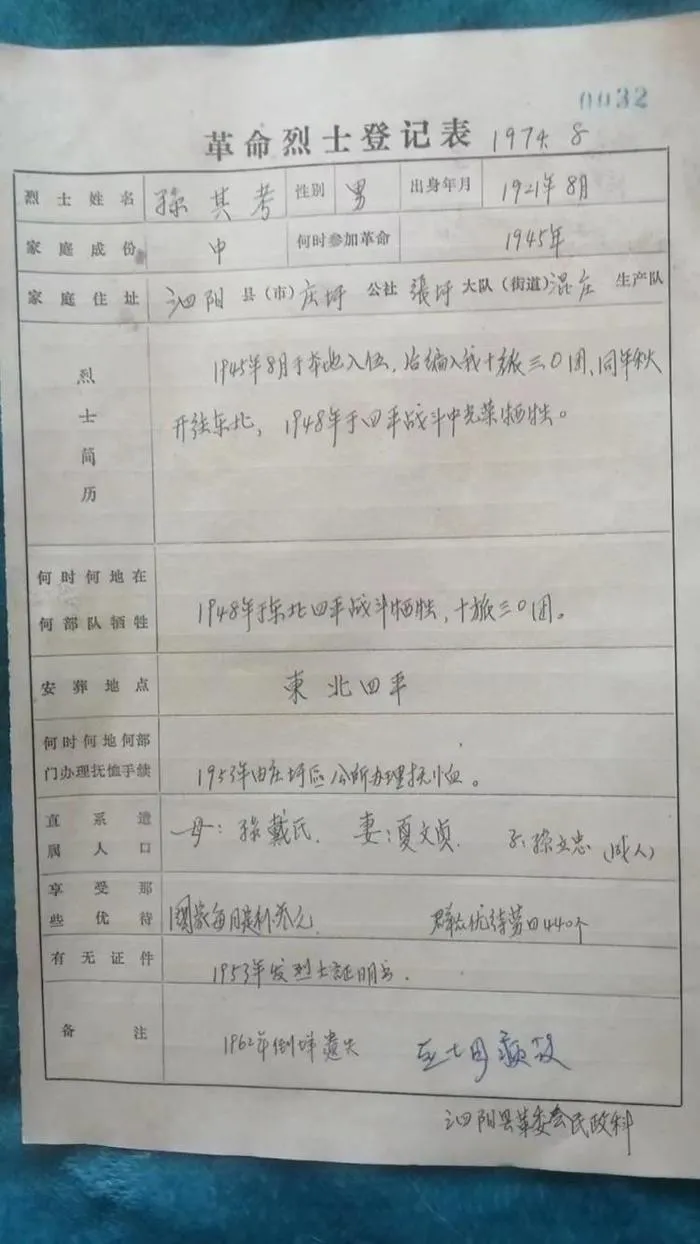 0032
革命烈士登记表 1974.8
烈士姓名 孫其考 性别 男 出身年月 1921年8月
家庭成份 中 何时参加革命 1945年
家庭住址 泗阳 县(市) 庄圩 公社 張圩 大队(街道) 混庄 生产队
烈士简历
1945年8月于本地入伍,后编入我十旅三0团、同年秋
开往东北,1948年于四平战斗中光荣牺牲。
何时何地在
何部队牺牲
1948年于东北四平战斗牺牲,十旅三0团。
安葬地点 東北四平
何时何地何部
门办理抚恤手续
1953年由庄圩区公所办理抚恤。
直系遗
属人口
母:孫戴氏. 妻:夏文贞. 子:孫立忠(成人)
享受那
些优待
國家每月定补叁元. 群众优待劳日440个
有无证件 1953年发烈士証明书.
备注 1962年倒坍遗失
泗阳县革委会民政科